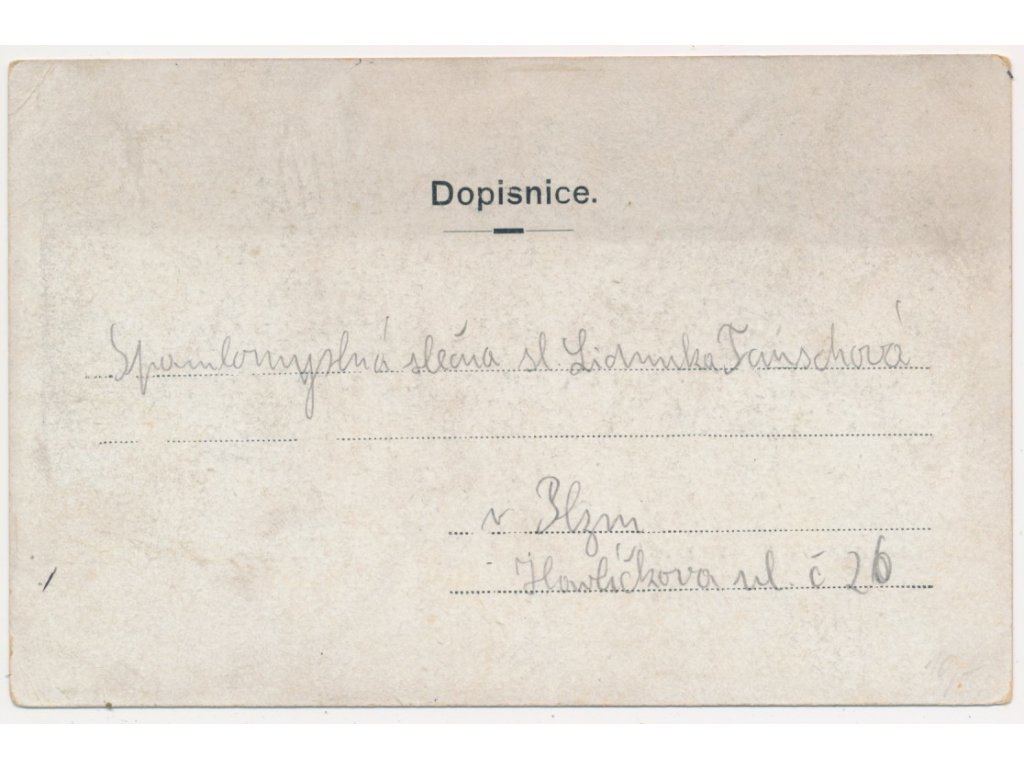 Dopisnice.
slečna sl. Lidunka
v Plzni
Havlíčkova ul. č 26